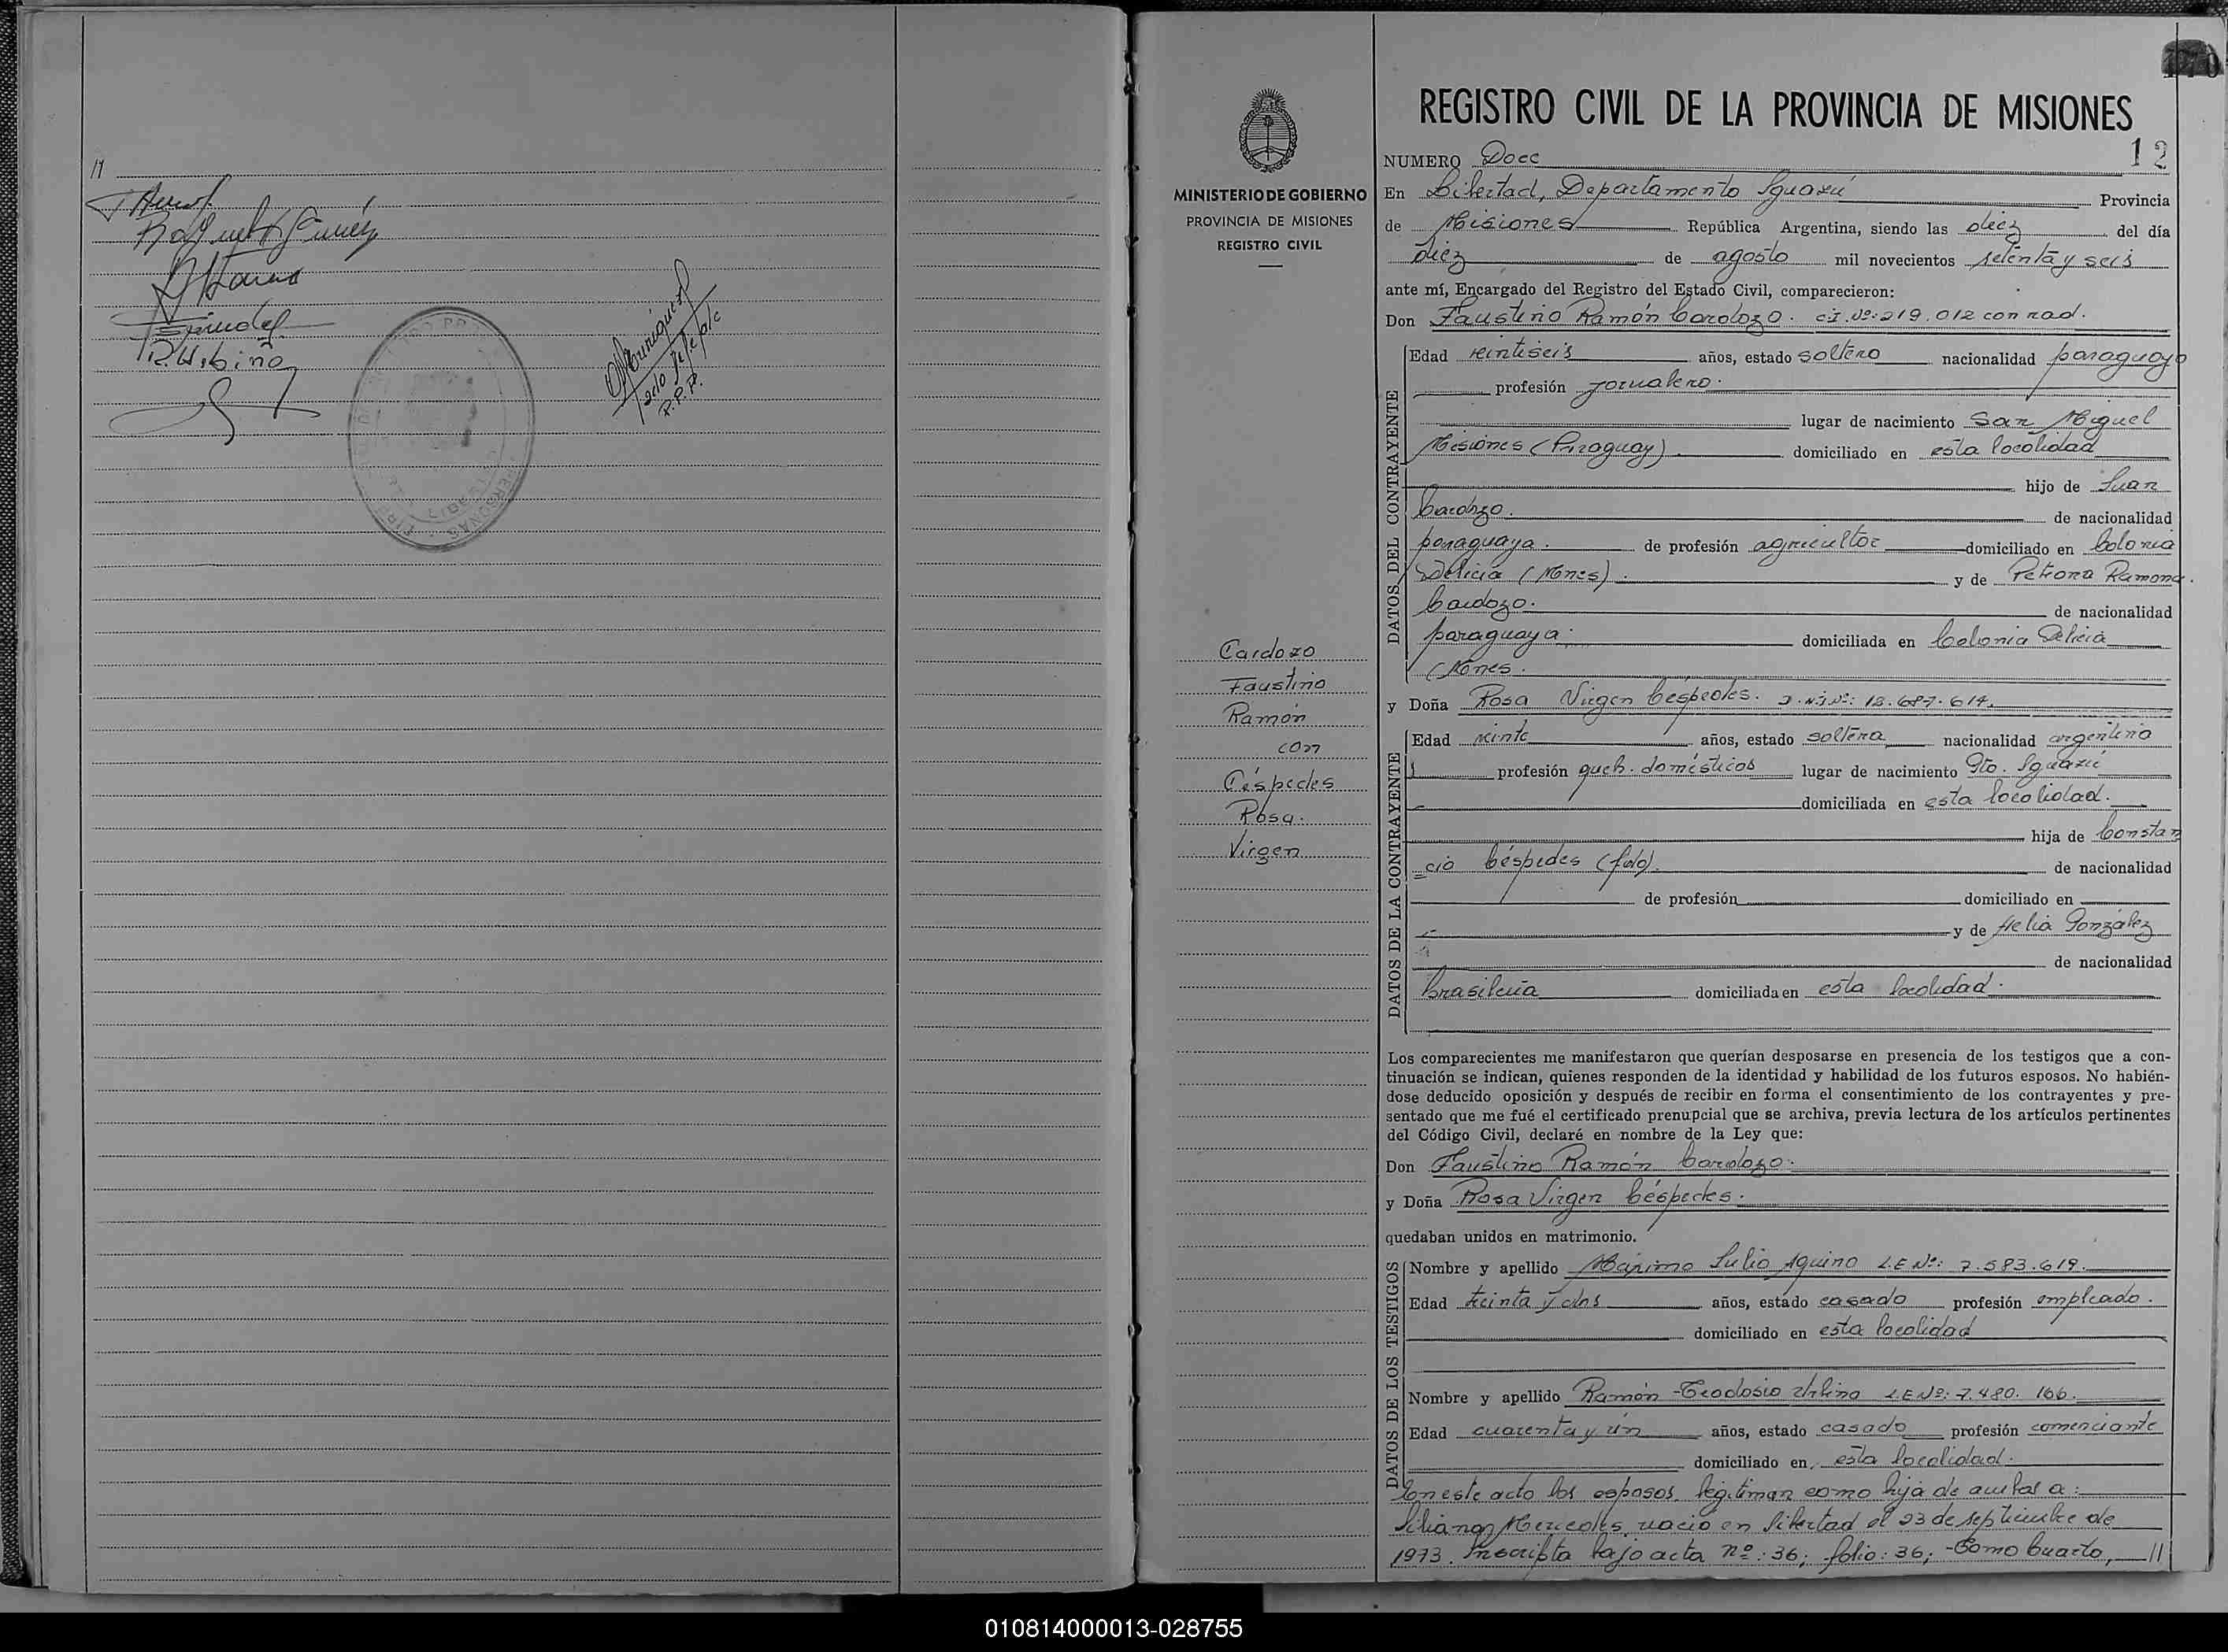 11
R. Urbina
REGISTRO CIVIL DE LA PROVINCIA DE MISIONES
MINISTERIO DE GOBIERNO
PROVINCIA DE MISIONES
REGISTRO CIVIL
Cardozo
Faustino
Ramón
con
Céspedes
Rosa.
Virgen
NUMERO Doce 12
En Libertad, Departamento Iguazú Provincia
de Misiones República Argentina, siendo las diez del día
diez de agosto mil novecientos setenta y seis
ante mí, Encargado del Registro del Estado Civil, comparecieron:
Don Faustino Ramón Cardozo. C.I. Nº: 219.012 con rad.
DATOS DEL CONTRAYENTE
Edad veintiseis años, estado soltero nacionalidad paraguayo
profesión jornalero.
lugar de nacimiento San Miguel
Misiones (Paraguay) domiciliado en esta localidad
hijo de Juan
Cardozo. de nacionalidad
paraguaya. de profesión agricultor domiciliado en Colonia
Delicia (Mnes). y de Petrona Ramona
Cardozo. de nacionalidad
paraguaya. domiciliada en Colonia Delicia
(Mnes.
y Doña Rosa Virgen Céspedes. D.N.I. Nº: 12.687.614.
DATOS DE LA CONTRAYENTE
Edad veinte años, estado soltera nacionalidad argentina
profesión queh. domésticos lugar de nacimiento Pto. Iguazú
domiciliada en esta localidad.
hija de Constan
=cio Céspedes (fdo). de nacionalidad
de profesión domiciliado en
y de Helia González
de nacionalidad
brasileña domiciliada en esta localidad.
Los comparecientes me manifestaron que querían desposarse en presencia de los testigos que a con-
tinuación se indican, quienes responden de la identidad y habilidad de los futuros esposos. No habién-
dose deducido oposición y después de recibir en forma el consentimiento de los contrayentes y pre-
sentado que me fué el certificado prenupcial que se archiva, previa lectura de los artículos pertinentes
del Código Civil, declaré en nombre de la Ley que:
Don Faustino Ramón Cardozo.
y Doña Rosa Virgen Céspedes.
quedaban unidos en matrimonio.
DATOS DE LOS TESTIGOS
Nombre y apellido Máximo Julio Aquino L.E Nº: 7.583.619.
Edad treinta y dos años, estado casado profesión empleado.
domiciliado en esta localidad
Nombre y apellido Ramón Teodosio Urbina L.E Nº: 7.480.166.
Edad cuarenta y ún años, estado casado profesión comerciante
domiciliado en esta localidad.
Con este acto los esposos, legitiman como hija de ambos a:
Liliana Mercedes, nació en Libertad el 23 de septiembre de
1973. Inscripta bajo acta nº: 36; folio: 36; -Tomo Cuarto, 11
010814000013-028755